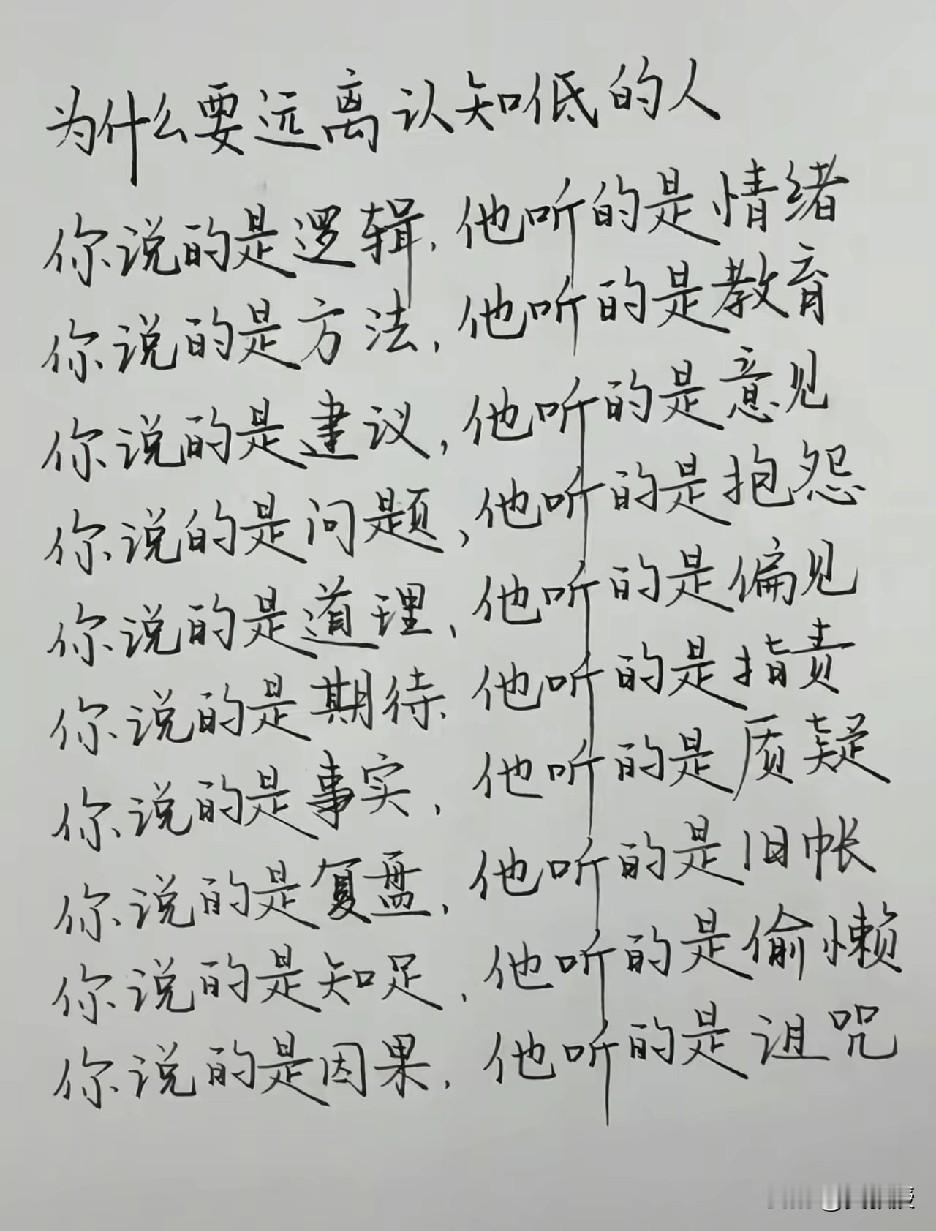 为什么要远离认知低的人
你说的是逻辑,他听的是情绪
你说的是方法,他听的是教育
你说的是建议,他听的是意见
你说的是问题,他听的是抱怨
你说的是道理,他听的是偏见
你说的是期待.他听的是指责
你说的是事实,他听的是质疑
你说的是复盘,他听的是旧帐
你说的是知足,他听的是偷懒
你说的是因果,他听的是诅咒